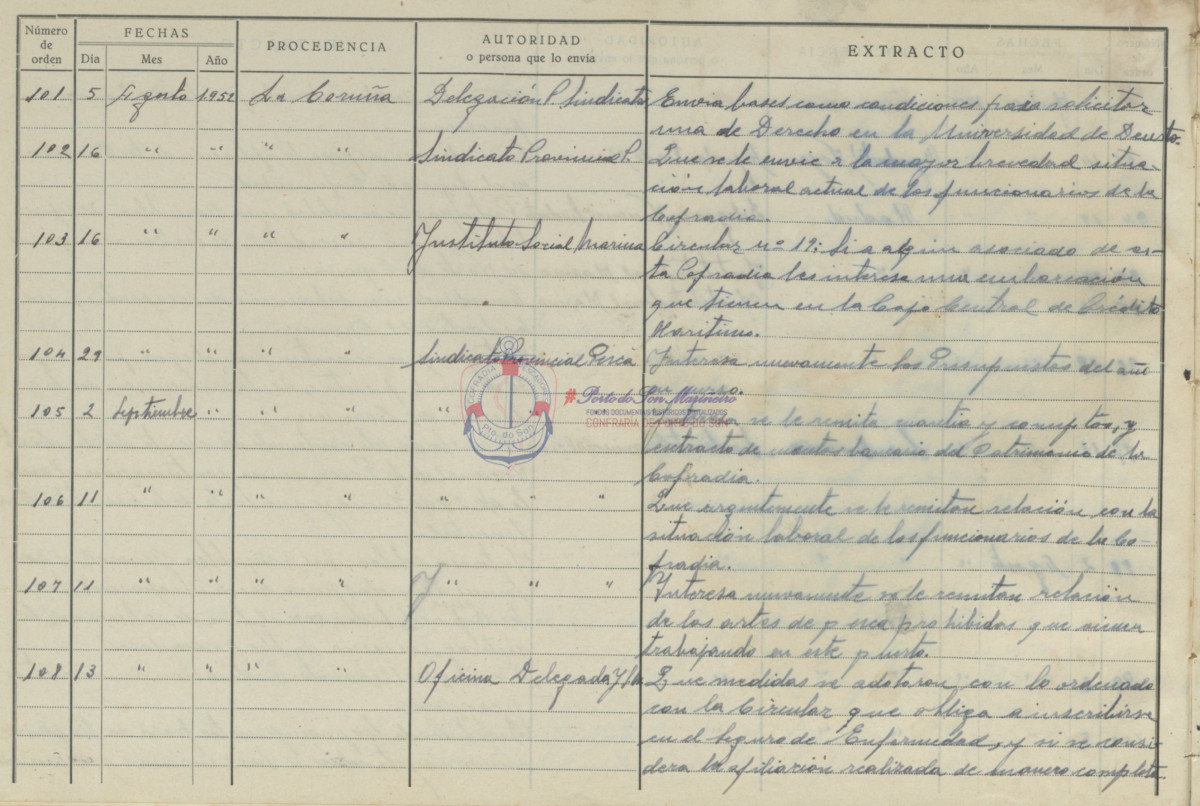 Número de orden
FECHAS
Día Mes Año
PROCEDENCIA
AUTORIDAD
o persona que lo envía
EXTRACTO
101 5 Agosto 1952 La Coruña Delegación P. Sindicato Envia bases como condiciones para solicitar
una de Derecho en la Universidad de Deusto.
102 16 " " " " Sindicato Provincial P. Que se le envie a la mayor brevedad situa-
ción laboral actual de los funcionarios de la
Cofradia.
103 16 " " " " Instituto Social Marina Circular nº 19: Si a algun asociado de es-
ta Cofradia les interesa una embarcación
que tienen en la Caja Central de Crédito
Maritimo.
104 29 " " " " Sindicato Provincial Pesca Interesa nuevamente los Presupuestos del año
en curso.
105 2 Septiembre " " " " " se le remita cuantia y conceptos, y
extracto de cuentas bancario del Patrimonio de la
Cofradia.
106 11 " " " " " " " Que urgentemente se le remitan relación con la
situación laboral de los funcionarios de la Co-
fradia.
107 11 " " " " " " " Interesa nuevamente se le remitan relación
de los artes de pesca prohibidos que vienen
trabajando en este puerto.
108 13 " " " " Oficina Delegada Que medidas se adotaron, con lo ordenado
con la Circular que obliga a inscribirse
en el Seguro de Enfermedad, y si se consi-
dera la afiliación realizada de manera completa.
COFRADIA PESCADORES
Pto. do Son
#Porto do Son Mariñeiro
FONDOS DOCUMENTAIS HISTÓRICOS DIXITALIZADOS
CONFRARÍA DE PORTO DO SON